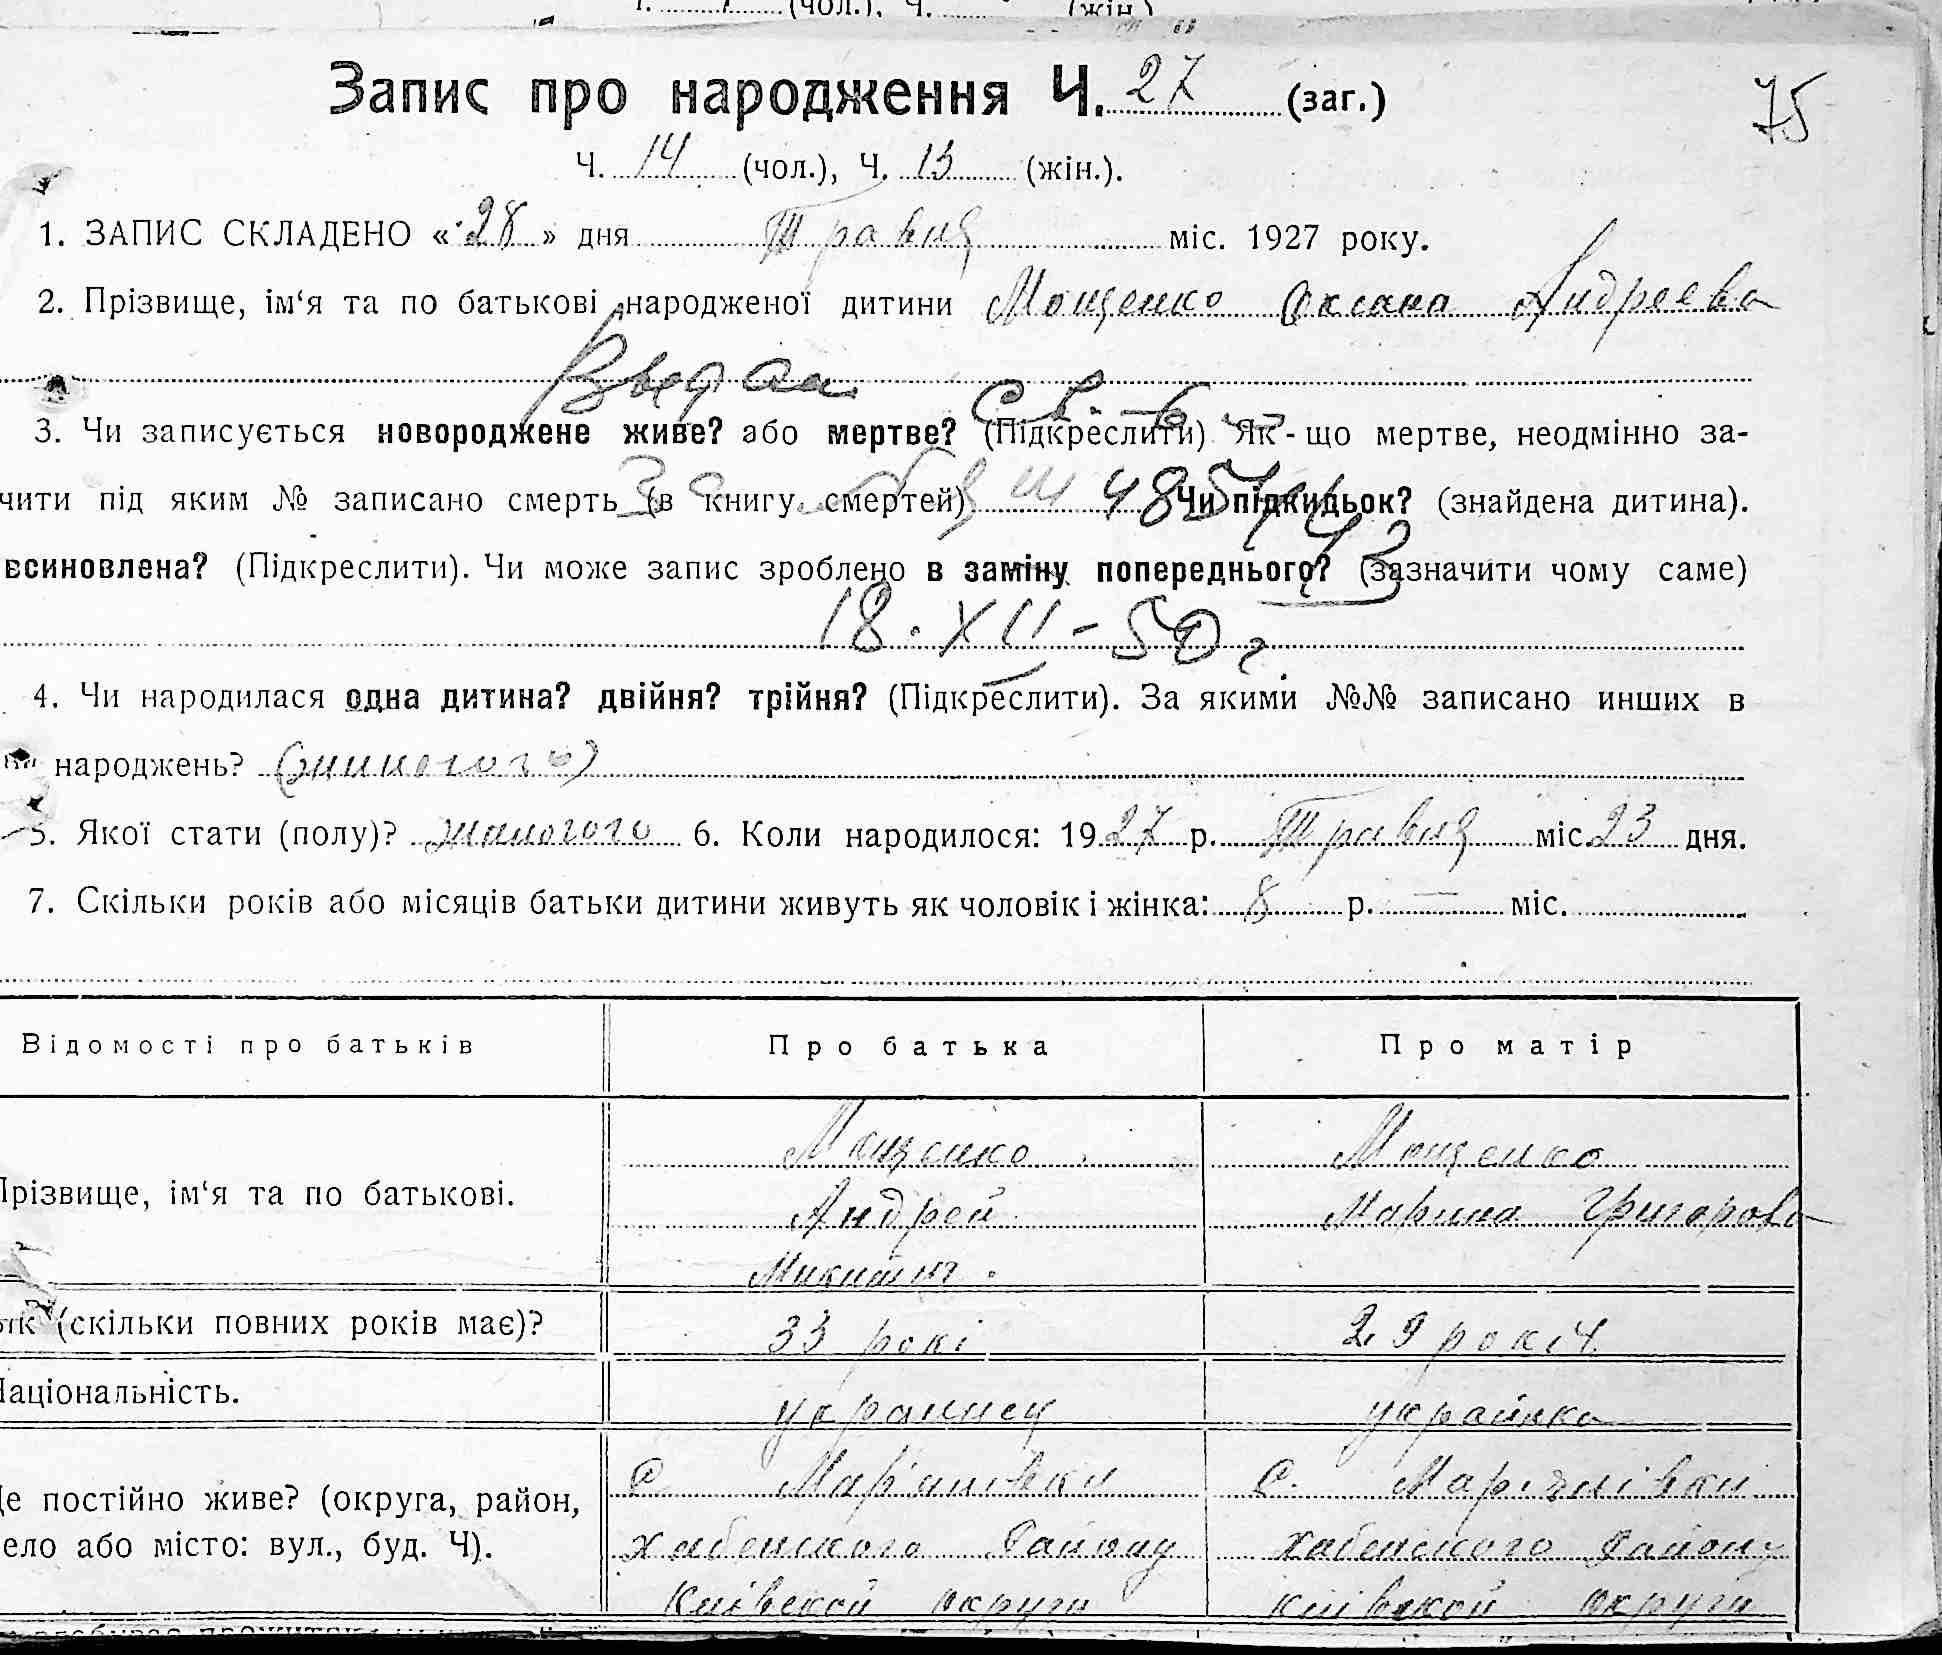 (чол.), Ч. (жін.)
Запис про народження Ч. 27 (заг.)
75
Ч. 14 (чол.), Ч. 13 (жін.).
1. ЗАПИС СКЛАДЕНО «28» дня Травня міс. 1927 року.
2. Прізвище, ім‘я та по батькові народженої дитини Мощенко Оксана Андреева
Выдан св-
3. Чи записується новороджене живе? або мертве? (Підкреслити) Як-що мертве, неодмінно за-
чити під яким № записано смерть (в книгу смертей) Чи підкидьок? (знайдена дитина).
За
всиновлена? (Підкреслити). Чи може запис зроблено в заміну попереднього? (зазначити чому саме)
18.XII-50 г.
4. Чи народилася одна дитина? двійня? трійня? (Підкреслити). За якими №№ записано инших в
народжень?
5. Якої стати (полу)? 6. Коли народилося: 1927 р. Травня міс. 23 дня.
7. Скільки років або місяців батьки дитини живуть як чоловік і жінка: 8 р. — міс.
Відомості про батьків Про батька Про матір
Мощенко Мощенко
Прізвище, ім‘я та по батькові. Андрей Марина Григорова
Микитич.
(скільки повних років має)? 33 рокі 29 рокіч
Національність. украинец украйнка
с Мар'янівки с. Мар'янівки
Це постійно живе? (округа, район, Хабенского Району Хабенского Району
село або місто: вул., буд. Ч).
Київской округи Київской округи